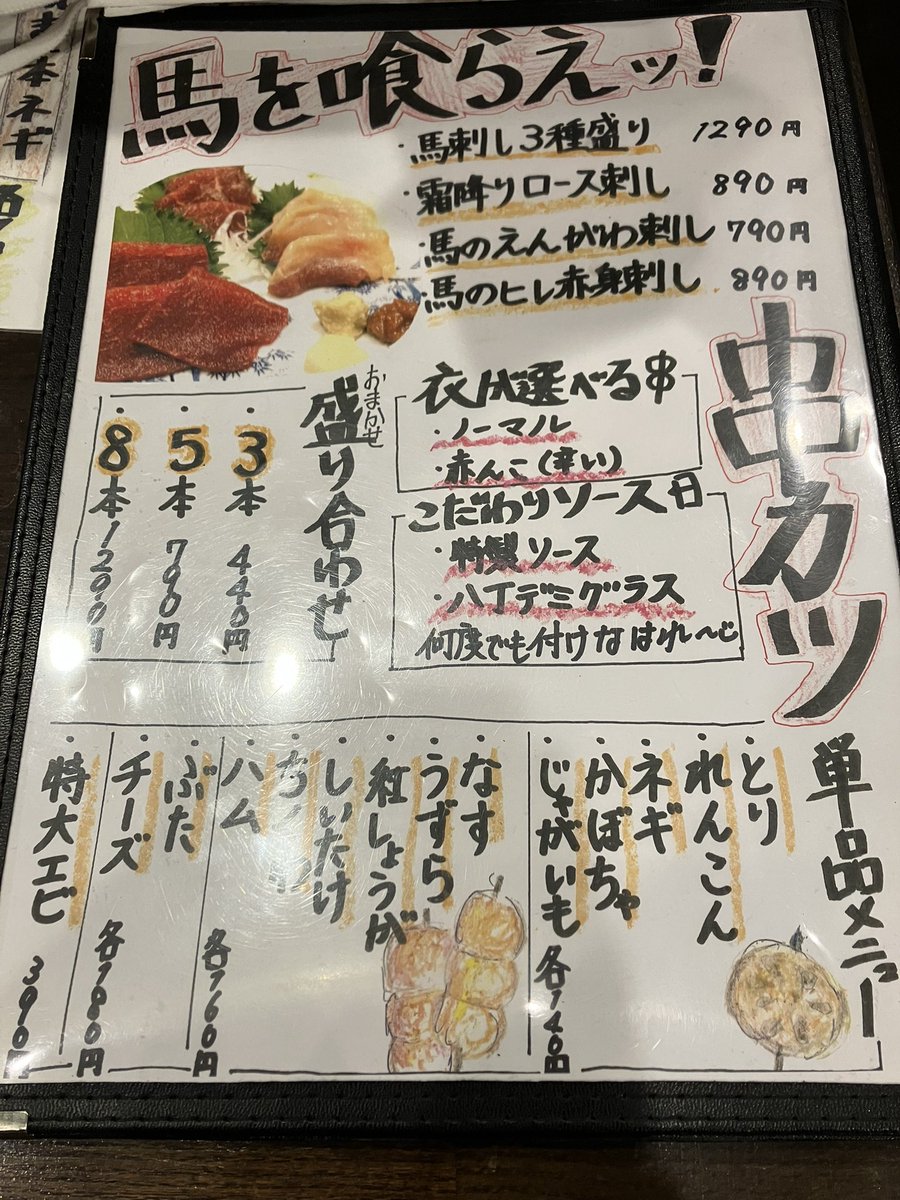 馬を喰らえッ!
・馬刺し3種盛り 1290円
・霜降りロース刺し 890円
・馬のえんがわ刺し 790円
・馬のヒレ赤身刺し 890円
串カツ
衣が選べる串
・ノーマル
・赤んこ(辛い)
こだわりソース
・特製ソース
・八丁デミグラス
何度でも付けなはれ〜じ
おまかせ
盛り合わせ
・3本 440円
・5本 790円
・8本 1290円
単品メニュー
・とり
・れんこん
・ネギ
・かぼちゃ
・じゃがいも 各140円
・なす
・うずら
・紅しょうが
・しいたけ
・ちくわ
・ハム 各160円
・ぶた
・チーズ 各180円
・特大エビ 390円
本ネギ